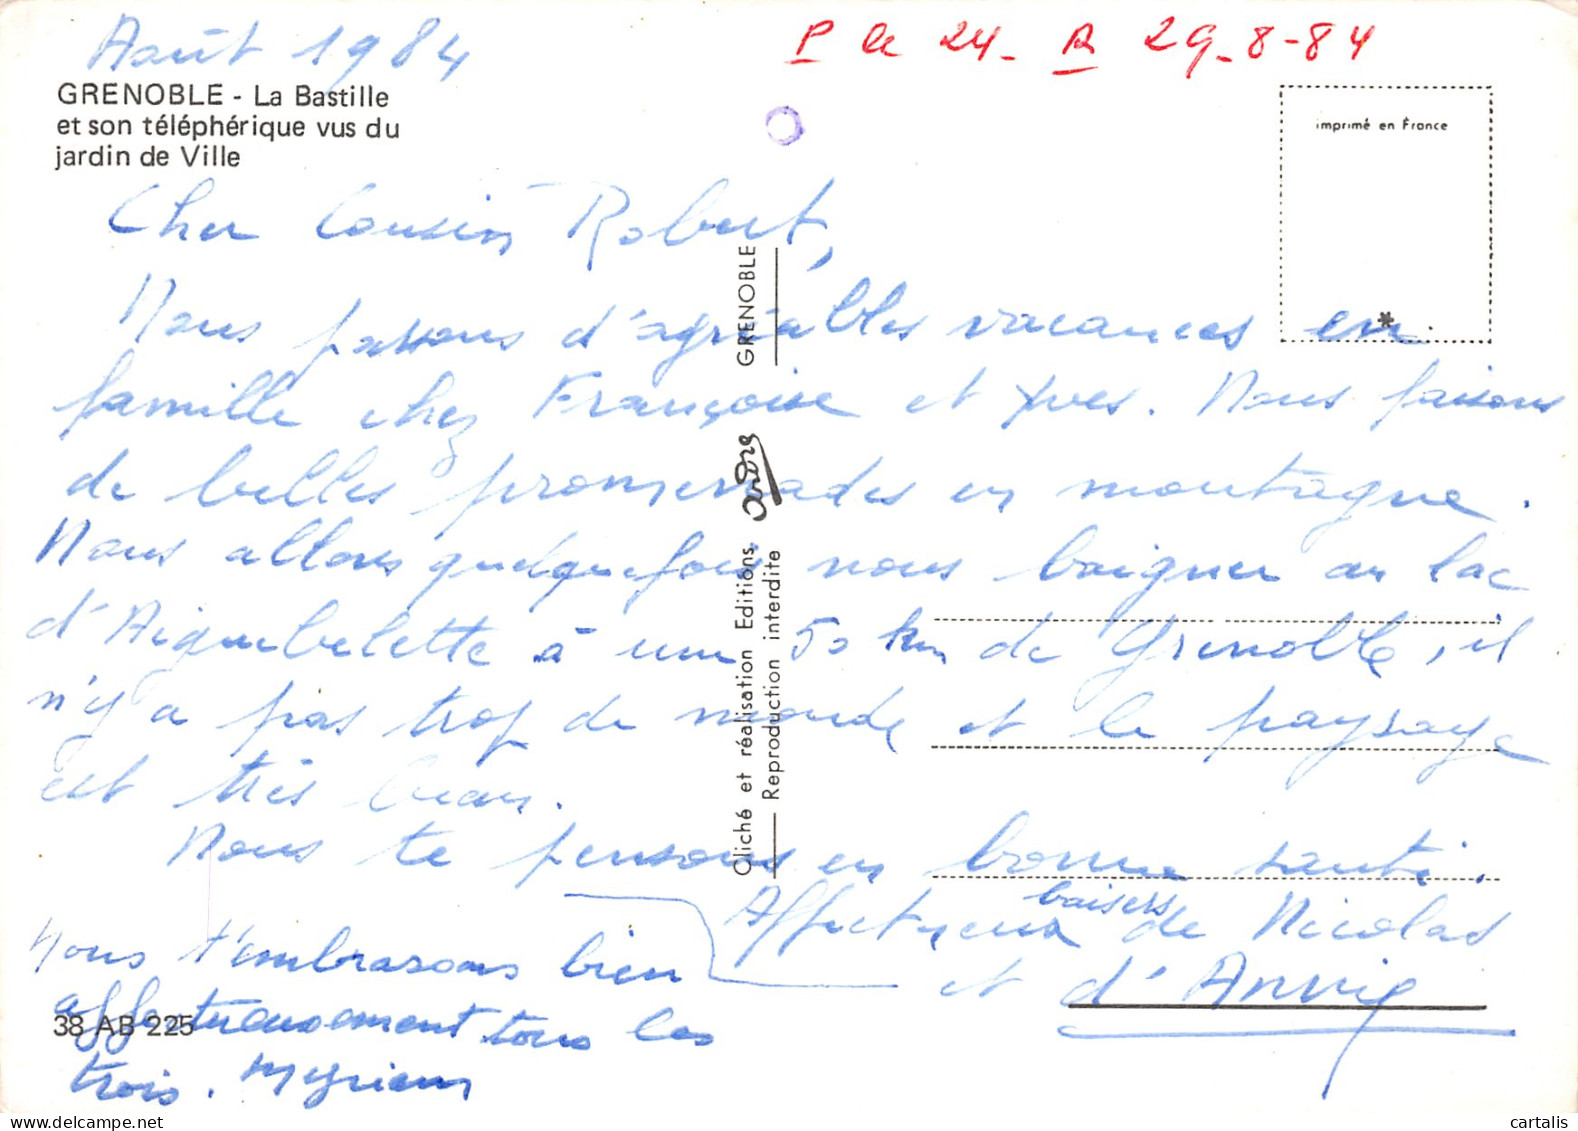 Août 1984
P le 24 - A 29-8-84
GRENOBLE - La Bastille
et son téléphérique vus du
jardin de Ville
imprimé en France
Cher Cousin Robert,
Nous passons d'agréables vacances en
famille chez Françoise et Yves. Nous faisons
de belles promenades en montagne.
Nous allons quelquefois nous baigner au lac
d'Aiguebelette à 50 km de Grenoble, il
n'y a pas trop de monde et le paysage
est très beau.
Nous te pensons en bonne santé.
Affectueux baisers de Nicolas
et d'Annie
Nous t'embrassons bien
affectueusement tous les
trois. Myriam
38 AB 225
Cliché et réalisation Editions André GRENOBLE
Reproduction interdite
www.cartalis.com